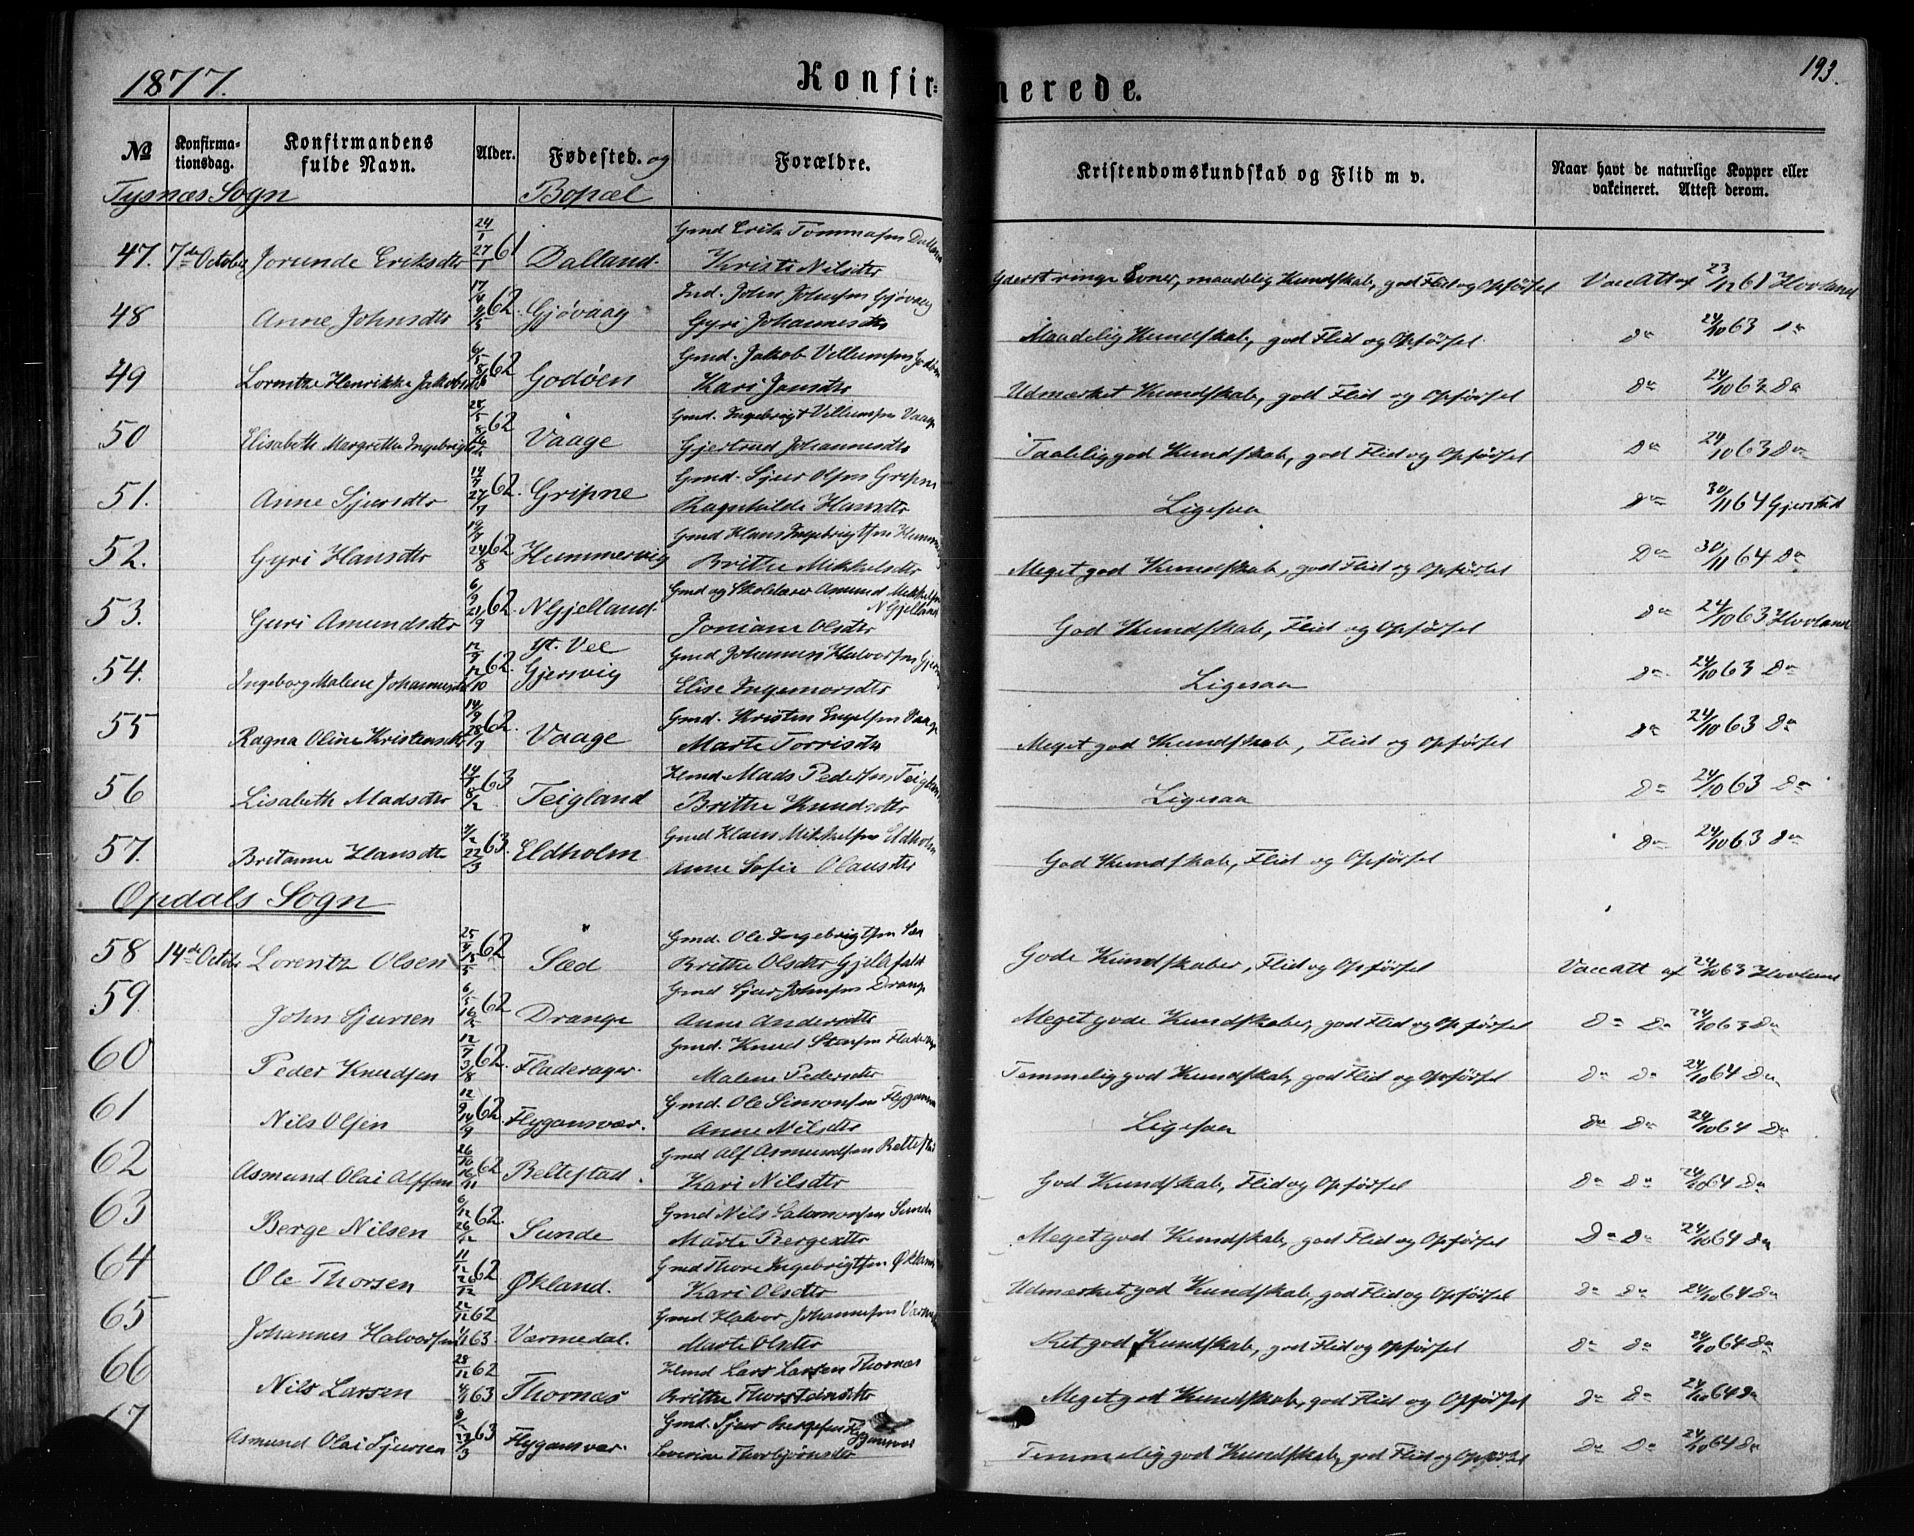 1877.
Konfir=
merede.
193.
№
Konfirma-
tionsdag.
Konfirmandens
fulde Navn.
Alder.
Fødested. og
Bopæl
Forældre.
Kristendomskundskab og Flid m v.
Naar havt de naturlige Kopper eller
vakcineret. Attest derom.
Tysnæs Sogn
47. 7de October Jorunde Eriksdtr 24/1 27/1 61 Dalland. Gmd Erik Tommasen Dalland
Kristi Nilsdtr
Yderst ringe Evner, maadelig Kundskab, god Flid og Opførsel VaccAtt af 23/12 61 Hovland
48 Anne Johnsdtr 17/4 4/5 62. Gjøvaag Ind. John Johnsen Gjøvaag
Gyri Johannesdtr
Maadelig Kundskab, god Flid og Opførsel. Do 24/10 63 Do
49 Lorentze Henrikke Jakobsdtr 6/5 8/6 62 Godøen Gmd. Jakob Villumsen Godøen
Kari Jansdtr
Udmærket Kundskab, god Flid og Opførsel Do 24/10 63 Do
50 Elisabeth Margrethe Ingebrigtsdtr 28/5 62 Vaage Gmd. Ingebrigt Villumsen Vaage
Gjertrud Johannesdtr
Taalelig god Kundskab, god Flid og Opførsel Do 24/10 63 Do
51. Anne Sjursdtr 14/7 27/7 62. Gripne Gmd. Sjur Olsen Gripne
Ragnhilde Hansdtr
Ligesaa Do 30/11 64 Gjerstad
52. Gyri Hansdtr 19/7 24/8 62 Hummervig Gmd Hans Ingebrigtsen Hummervig
Brithe Mikkelsdtr
Meget god Kundskab, god Flid og Opførsel Do 30/11 64 Do
53. Guri Amundsdtr 6/9 21/9 62. N Gjelland. Gmd og Skolelærer Amund Mikkelsen
N Gjelland
Joniane Olsdtr
God Kundskab, Flid og Opførsel Do 24/10 63 Hovland
54. Ingeborg Malene Johannesdtr 12/9 12/10 62 Yt. Vee
Gjersvig Gmd Johannes Halvorsen Gjersvig
Elise Ingemorsdtr
Ligesaa Do 24/10 63 Do
55 Ragna Oline Kristensdtr 14/9 28/9 62. Vaage Gmd. Kristen Engelsen Vaage
Marte Torrisdtr
Meget god Kundskab, Flid og Opførsel Do 24/10 63 Do
56 Lisabeth Madsdtr 8/2 63 Teigland Hmd Mads Pedersen Teigland
Brithe Knudsdtr
Ligesaa Do 24/10 63 Do
57. Britanne Hansdtr 22/3 63. Eldholm Gmd Hans Mikkelsen Eldholm
Anne Sofie Olausdtr
God Kundskab, Flid og Opførsel Do 24/10 63 Do
Opdals Sogn
58 14de October Lorentz Olsen 25/4 18/5 62 Sæd Gmd. Ole Ingebrigtsen Sæ
Brithe Olsdtr Gjelafald
Gode Kundskaber, Flid og Opførsel Vaccatt af 24/10 63 Hovland
59. John Sjursen 6/5 62 Drange Gmd Sjur Johnsen Drange
Anne Andersdtr
Meget gode Kundskaber, god Flid og Opførsel Do Do 24/10 63 Do
60 Peder Knudsen 12/7 3/8 62. Fladerager. Gmd. Knud Larsen Fladerager
Malene Pedersdtr
Temmelig god Kundskab, god Flid og Opførsel Do Do 24/10 64 Do
61 Nils Olsen 12/9 14/9 62. Flygansvær. Gmd. Ole Simonsen Flygansvær
Anne Nilsdtr
Ligesaa Do Do 24/10 64 Do
62 Asmund Olai Alfsen 26/10 16/11 62 Beltestad. Gmd Alf Asmundsen Beltestad
Kari Nilsdtr
God Kundskab, Flid og Opførsel Do Do 24/10 64 Do
63 Berge Nilsen 6/12 26/12 62. Sunde Gmd Nils Salomonsen Sunde
Marte Bergesdtr
Meget god Kundskab, god Flid og Opførsel Do Do 24/10 64 Do
64 Ole Thorsen 11/12 26/12 62 Økland. Gmd Thore Ingebrigtsen Økland
Kari Olsdtr
Udmærket god Kundskab, god Flid og Opførsel Do Do 24/10 64 Do
65 Johannes Halvorsen 22/12 62 1/1 63. Værmedal. Gmd Halvor Johannesen Værmedal
Marte Olsdtr
Ret god Kundskab, god Flid og Opførsel Do Do 24/10 64 Do
66 Nils Larsen 28/12 62 4/1 63 Thornæs Hmd Lars Larsen Thornæs
Brithe Thorsteinsdtr
Meget god Kundskab, god Flid og Opførsel Do Do 24/10 64 Do
67 Asmund Olai Sjursen 63 Flygansvær. Gmd. Sjur Bergesen Flygansvær
Lovrine Thorbjørnsdtr
Temmelig god Kundskab, god Flid og Opførsel Do Do 24/10 64 Do